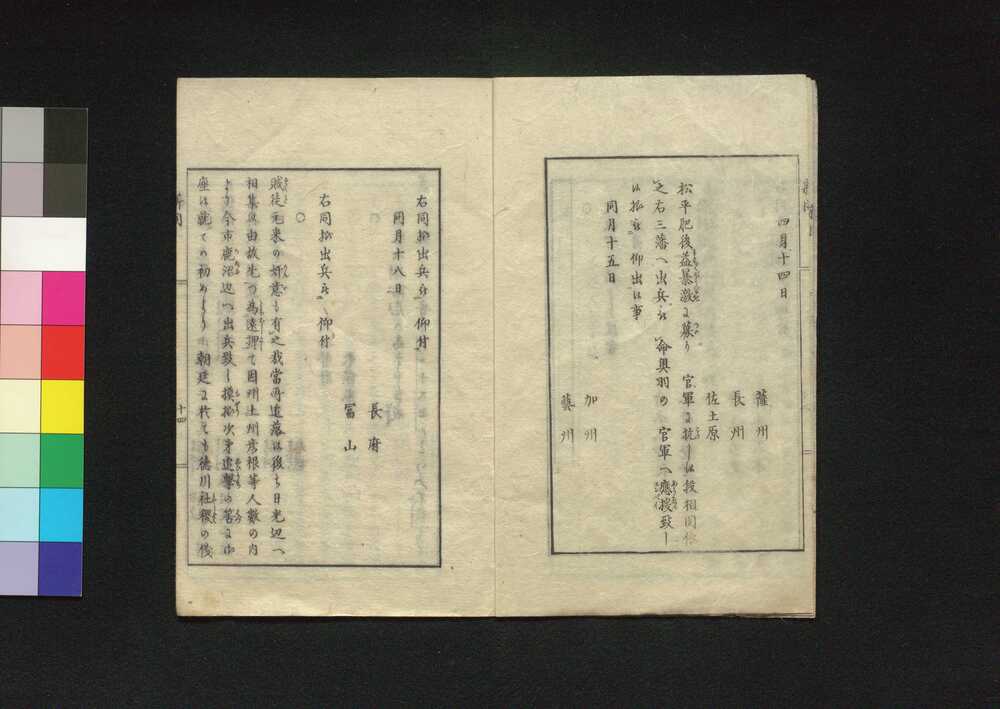 四月十四日
薩州
長州
佐土原
松平肥後益暴激ニ募り 官軍ニ抗し候段相聞候
之右三藩へ出兵被 命奥羽の 官軍へ應援致し
候様被 仰出候事
同月十五日
○
加州
藝州
右同様出兵被 仰付
同月十八日
○
長府
冨山
右同様出兵被 仰付
○
賊徒元来の奸意も有之我當所退落以後も日光辺へ
相集候由故先つ為遠弾て因州土州彦根等人数の内
より今市鹿沼辺へ出兵致し摸様次才進撃の筈ニ御
座候就ての初めより 朝廷ニ於ても徳川社稷の儀
十四